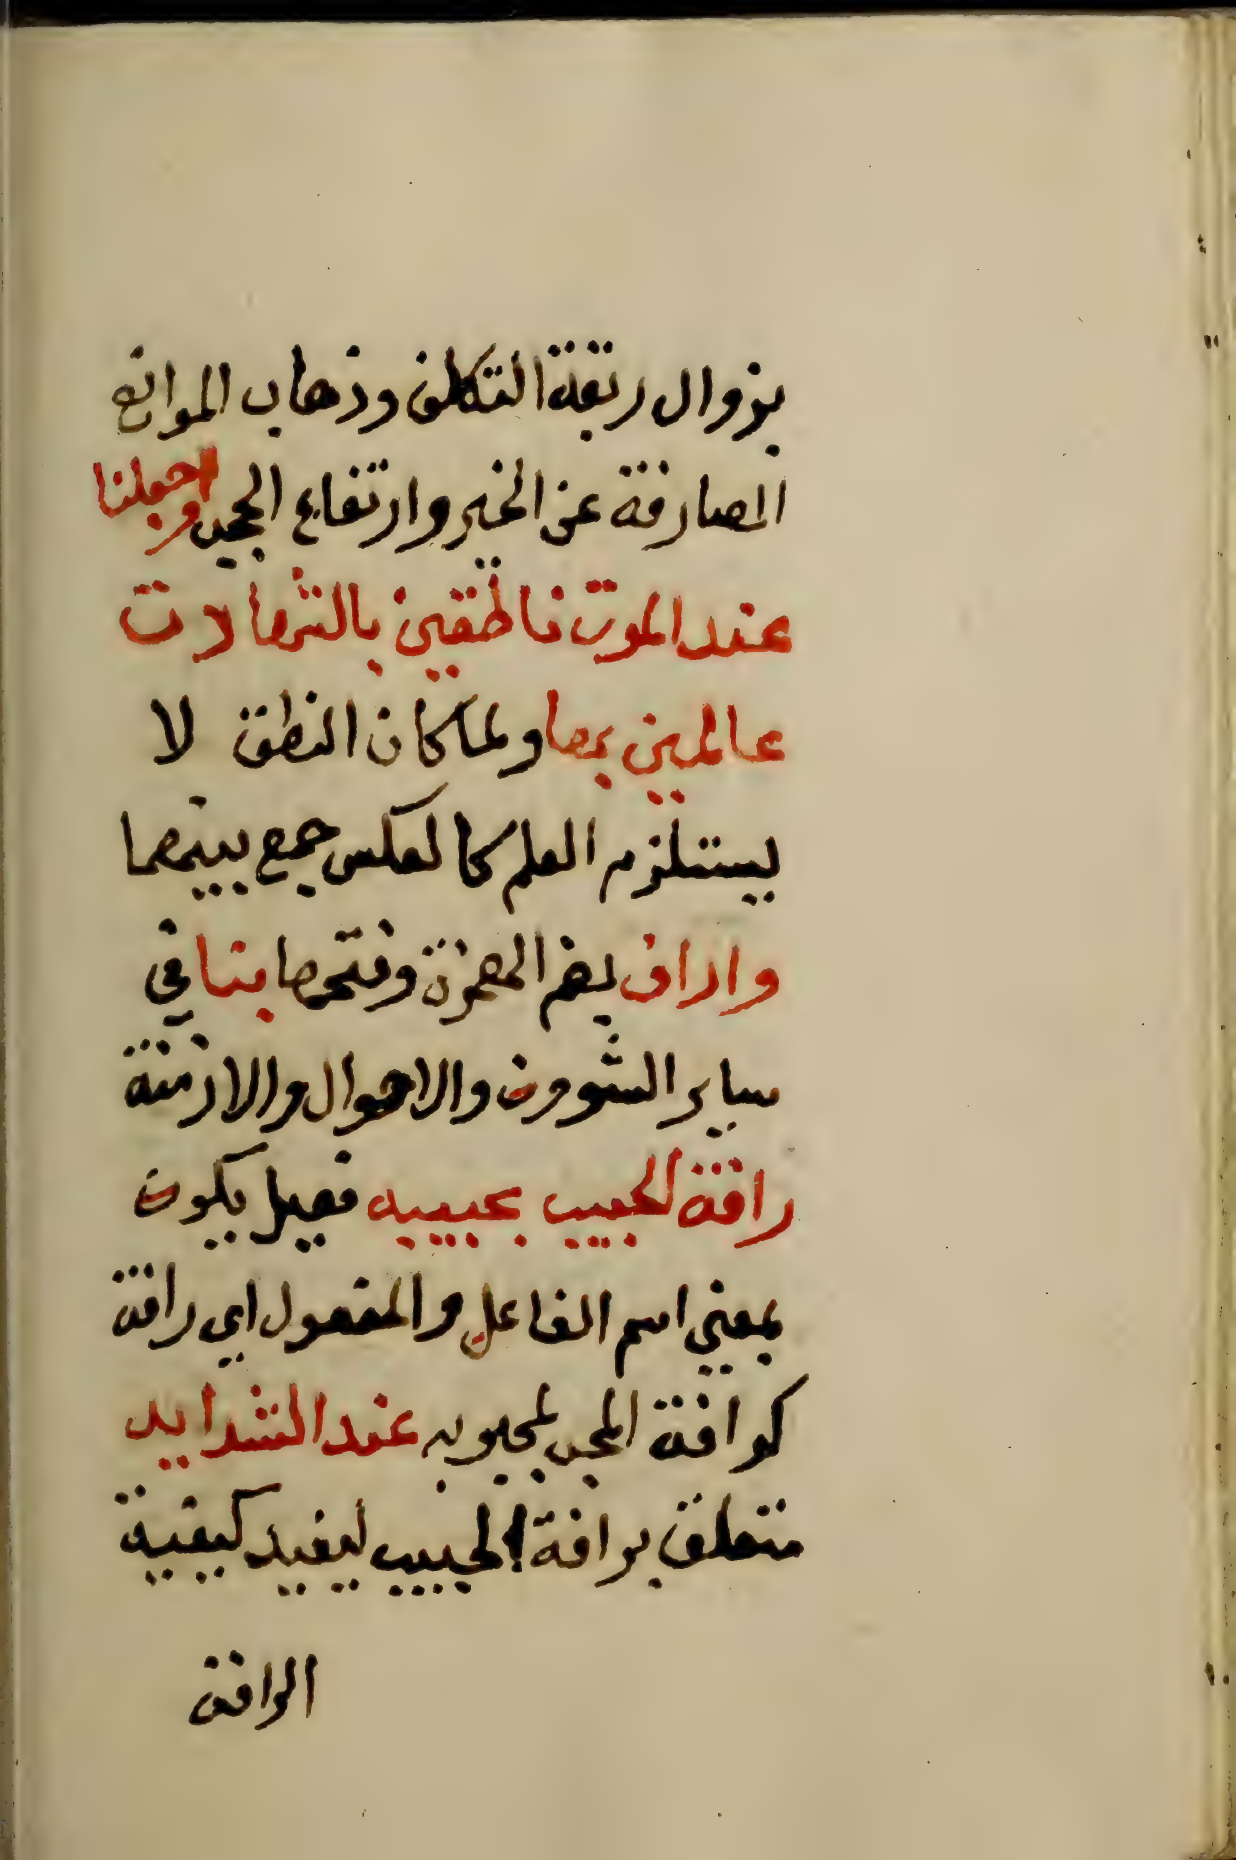 بزوال ربقة التكلف وذهاب الموانع
الصارفة عن الخير وارتفاع الحجب واجعلنا
عند الموت ناطقين بالشهادات
عالمين بها ولما كان النطق لا
يستلزم العلم كالعكس جمع بينهما
واراف بضم الهمزة وفتحها بنا في
ساير الشوون والاحوال والازمنة
رافة الحبيب بحبيبه فعيل يكون
بمعني اسم الفاعل والمفعول اي رافة
كرافة المحب لمحبوبه عند الشدايد
متعلق برافة الحبيب ليفيد كيفية
الرافة